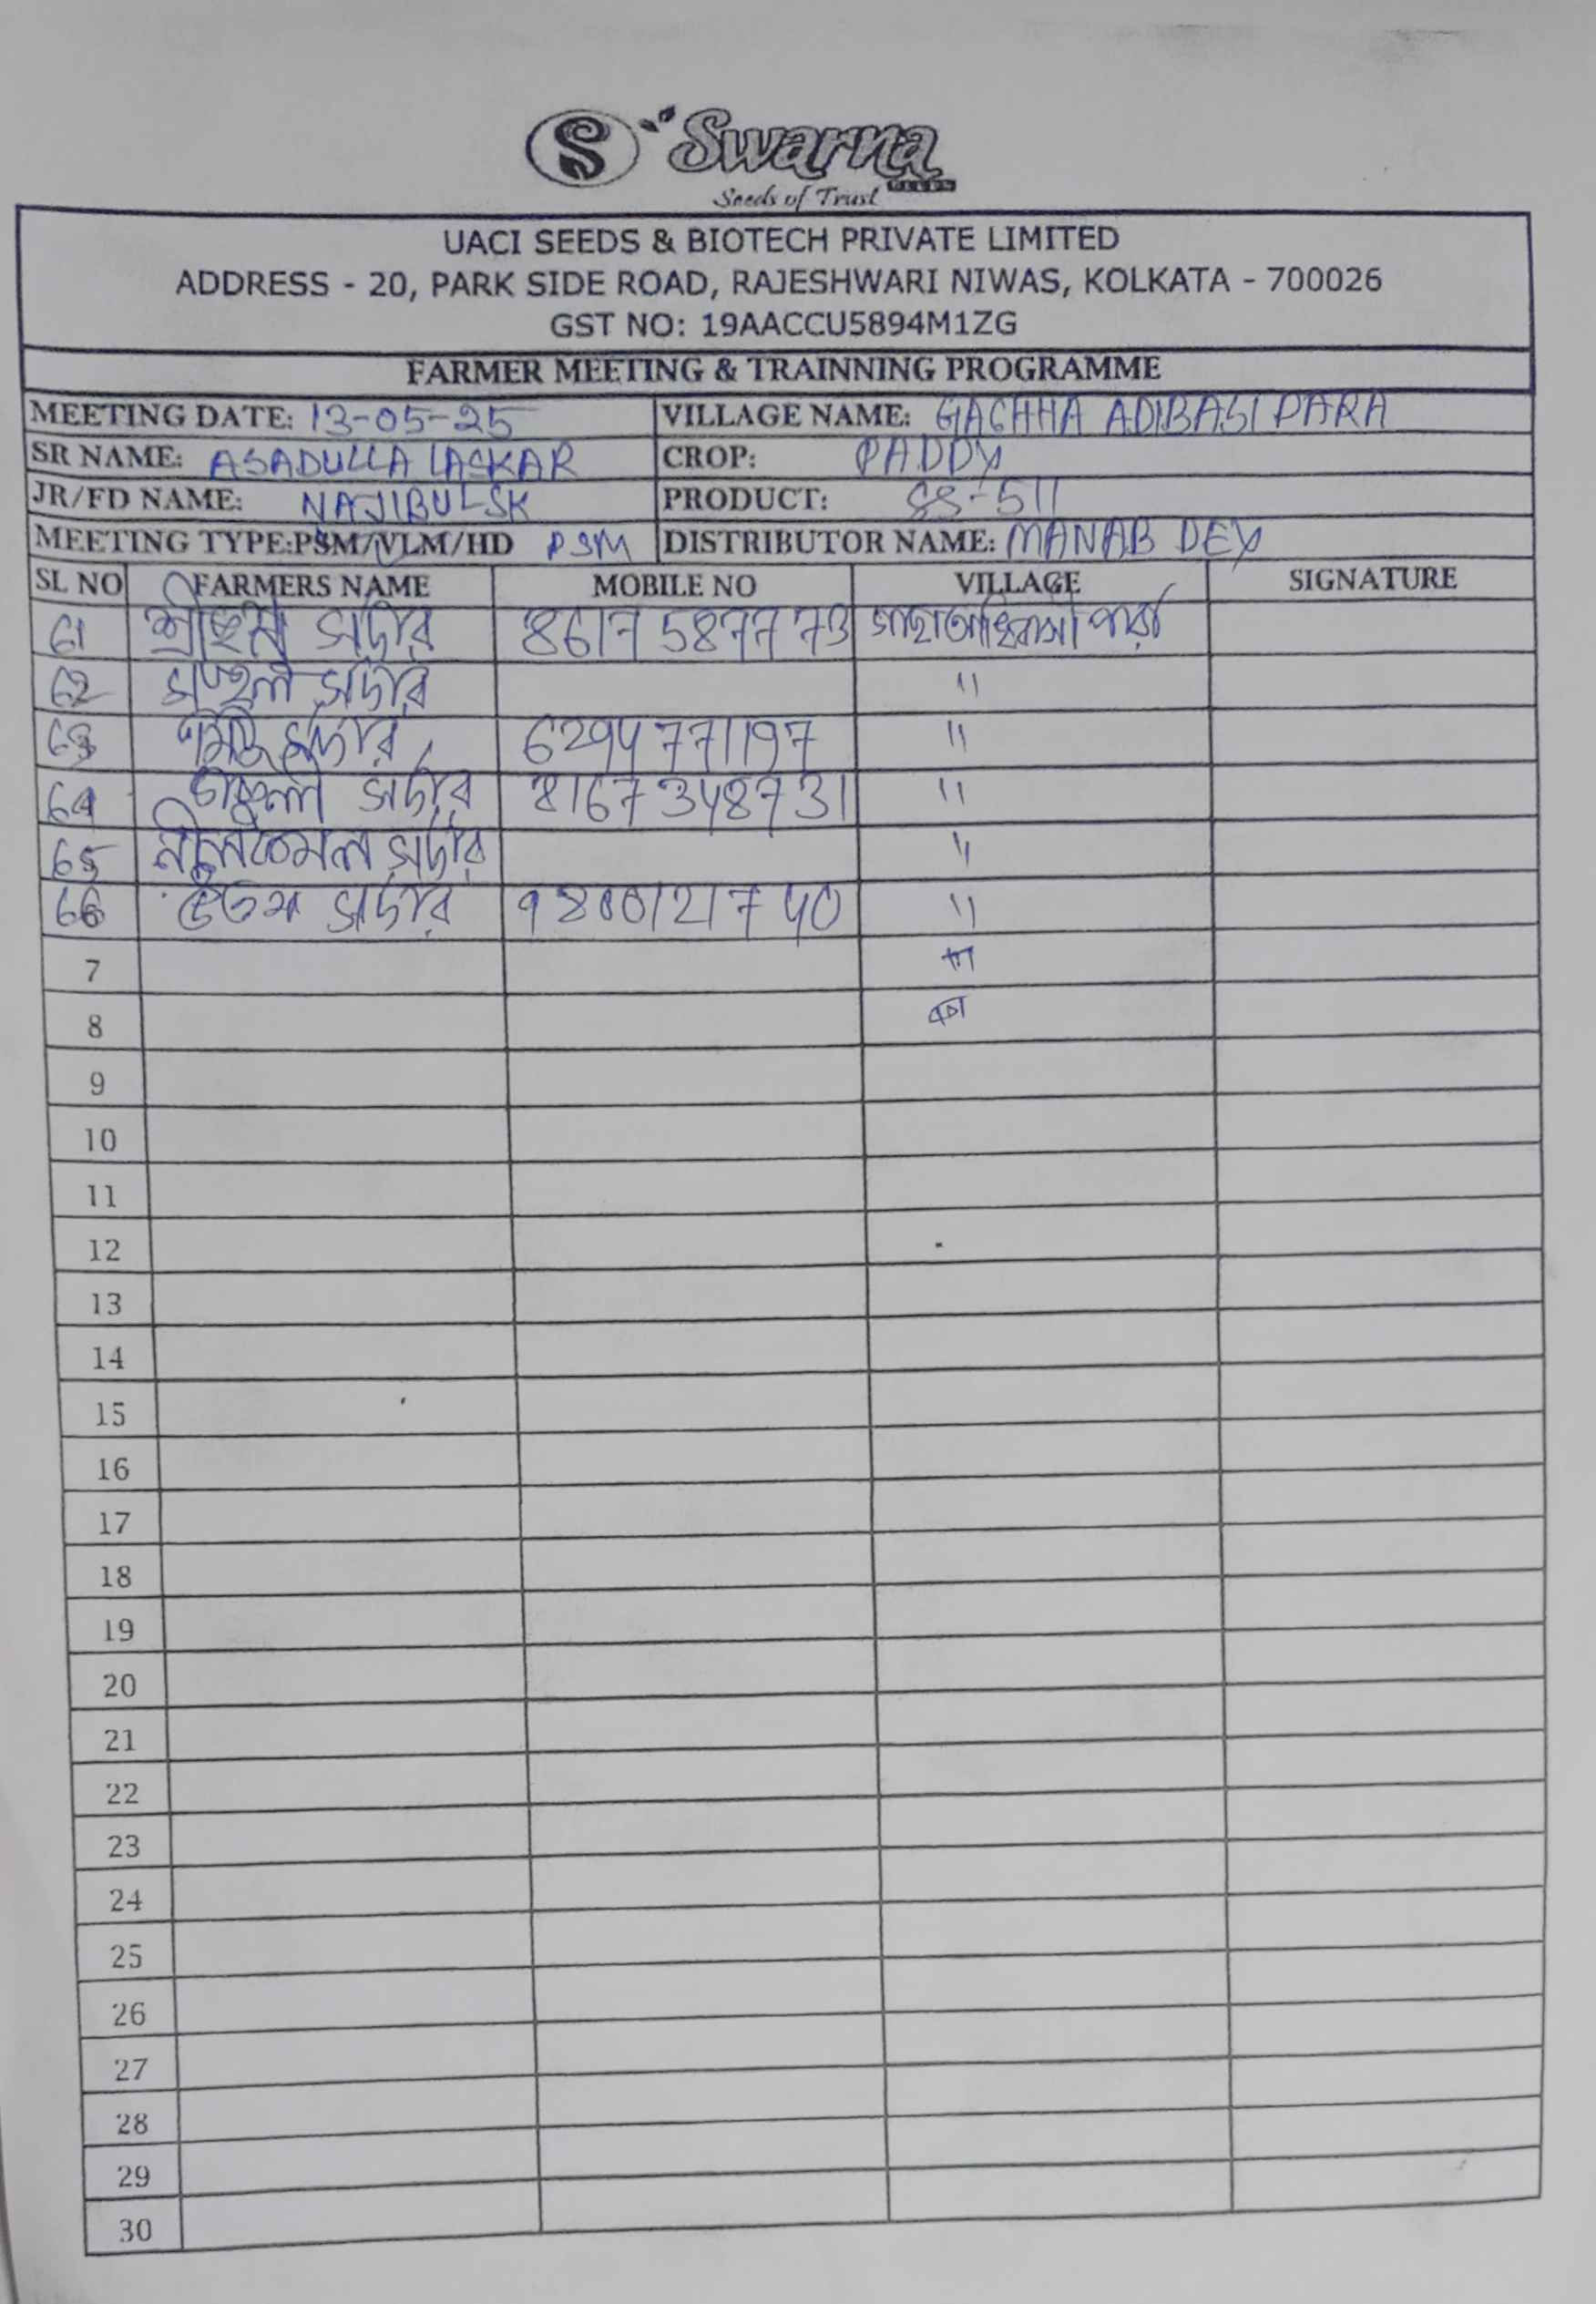 S Swarna
SEEDS
Seeds of Trust
UACI SEEDS & BIOTECH PRIVATE LIMITED
ADDRESS - 20, PARK SIDE ROAD, RAJESHWARI NIWAS, KOLKATA - 700026
GST NO: 19AACCU5894M1ZG
FARMER MEETING & TRAINNING PROGRAMME
MEETING DATE: 13-05-25 VILLAGE NAME: GACHHA ADIBASI PARA
SR NAME: ASADULLA LASKAR CROP: PADDY
JR/FD NAME: NAJIBUL SK PRODUCT: SS-511
MEETING TYPE:PSM/VLM/HD PSM DISTRIBUTOR NAME: MANAB DEY
SL NO FARMERS NAME MOBILE NO VILLAGE SIGNATURE
61 সর্দার 8617587773
62 সর্দার "
63 সর্দার 6294771197 "
64 সর্দার 8167348731 "
65 নীলকমল সর্দার "
66 উত্তম সর্দার 9800121740 "
7
8
9
10
11
12
13
14
15
16
17
18
19
20
21
22
23
24
25
26
27
28
29
30